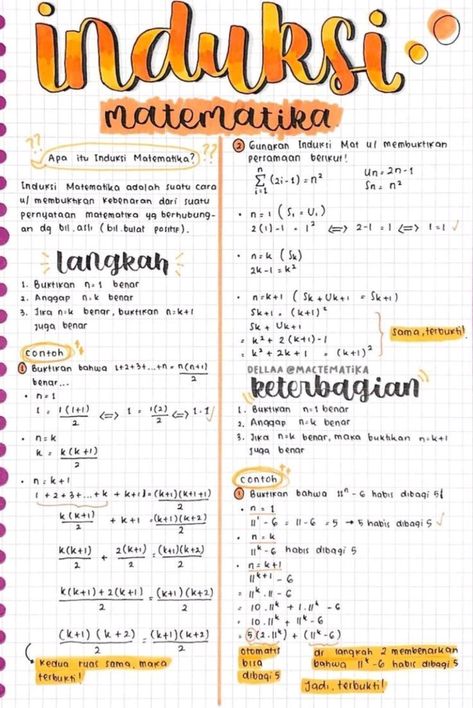 induksi
matematika
??
Apa itu Induksi Matematika?
??
Induksi Matematika adalah suatu cara
u/ membuktikan kebenaran dari suatu
pernyataan matematika yg berhubung-
an dg bil. asli (bil. bulat positif).
langkah
1. Buktikan n=1 benar
2. Anggap n=k benar
3. Jika n=k benar, buktikan n=k+1
juga benar
contoh
① Buktikan bahwa 1+2+3+...+n = n(n+1)/2
benar...
• n=1
1 = 1(1+1)/2 ⟺ 1 = 1(2)/2 ⟺ 1=1 ✓
• n=k
k = k(k+1)/2
• n=k+1
1+2+3+...+k + k+1 = (k+1)(k+1+1)/2
k(k+1)/2 + k+1 = (k+1)(k+2)/2
k(k+1)/2 + 2(k+1)/2 = (k+1)(k+2)/2
k(k+1)+2(k+1)/2 = (k+1)(k+2)/2
(k+1)(k+2)/2 = (k+1)(k+2)/2
Kedua ruas sama, maka
terbukti!
② Gunakan Induksi Mat u/ membuktikan
persamaan berikut!
n∑i=1 (2i-1) = n² Un = 2n-1
Sn = n²
• n=1 (S₁ = U₁)
2(1)-1 = 1² ⟺ 2-1 = 1 ⟺ 1=1 ✓
• n=k (Sk)
2k-1 = k²
• n=k+1 (Sk + Uk+1 = Sk+1)
Sk+1 = (k+1)²
Sk + Uk+1
= k² + 2(k+1)-1
= k² + 2k + 1 = (k+1)²
Sama, terbukti!
DELLAA @MACTEMATIKA
keterbagian
1. Buktikan n=1 benar
2. Anggap n=k benar
3. Jika n=k benar, maka buktikan n=k+1
juga benar
contoh
① Buktikan bahwa 11ⁿ-6 habis dibagi 5!
• n=1
11¹-6 = 11-6 = 5 → 5 habis dibagi 5 ✓
• n=k
11ᵏ-6 habis dibagi 5
• n=k+1
11ᵏ⁺¹ - 6
= 11ᵏ.11 - 6
= 10.11ᵏ + 1.11ᵏ - 6
= 10.11ᵏ + 11ᵏ - 6
= 5(2.11ᵏ) + (11ᵏ-6)
otomatis
bisa
dibagi 5
di langkah 2 membenarkan
bahwa 11ᵏ-6 habis dibagi 5
Jadi, terbukti!